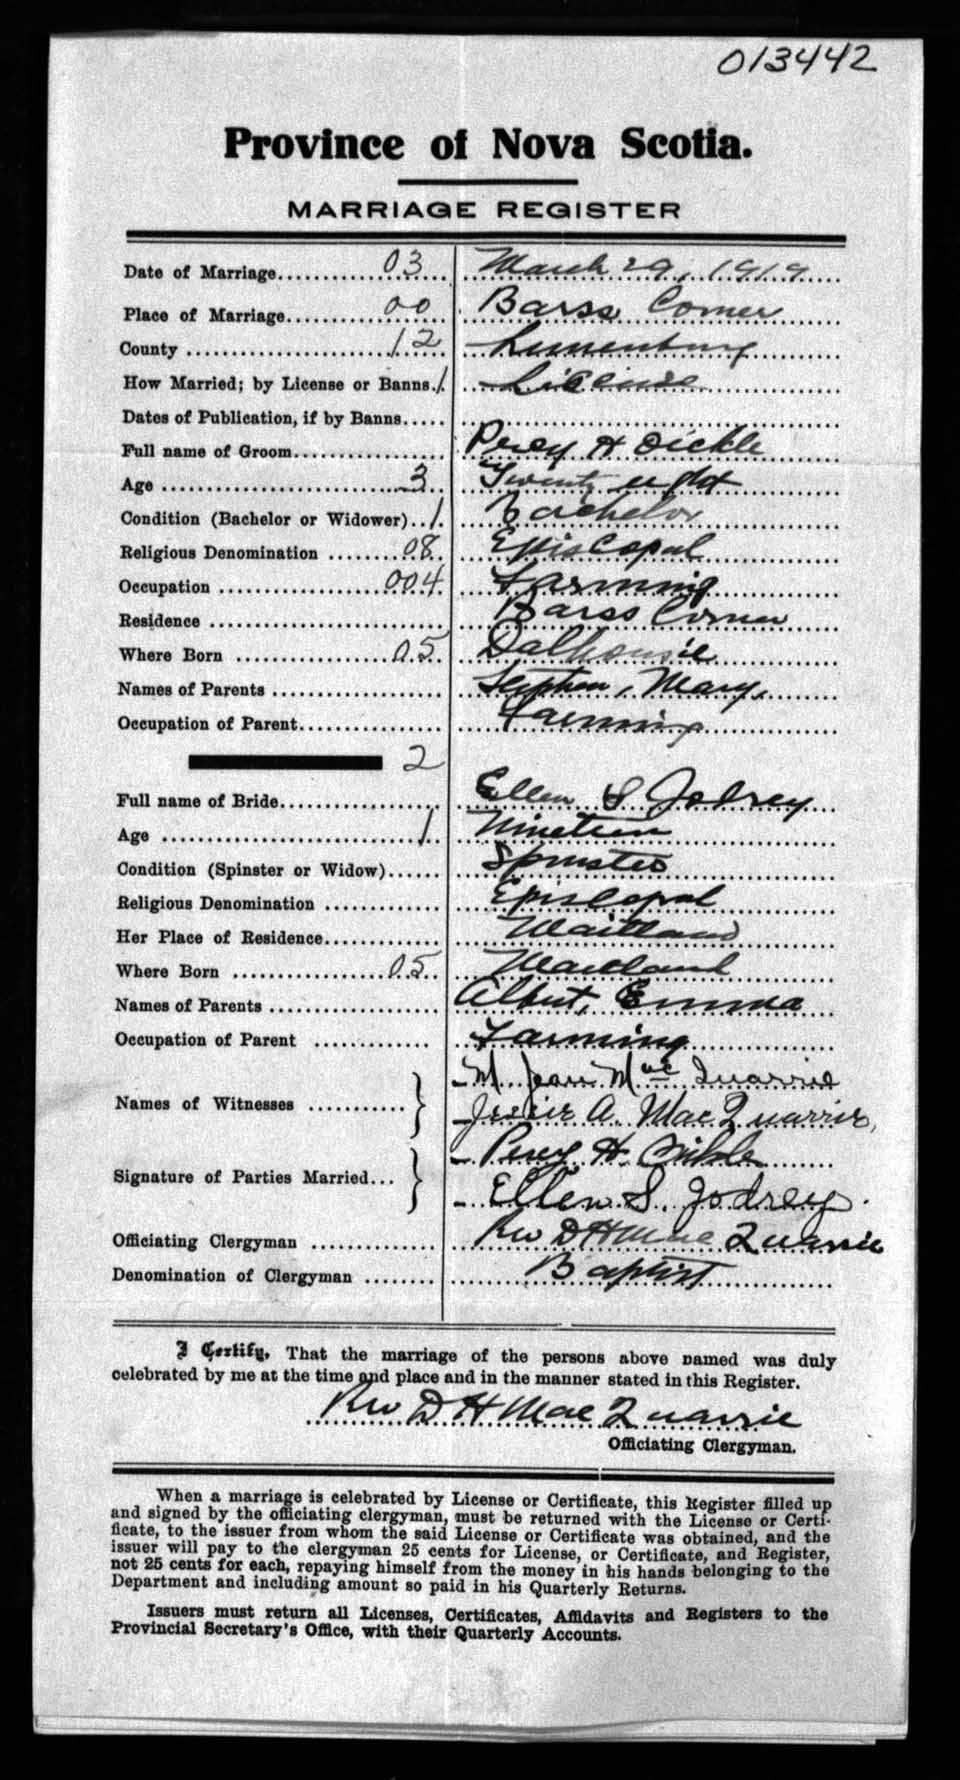 013442
Province of Nova Scotia.
MARRIAGE REGISTER
Date of Marriage 03 March 29, 1919
Place of Marriage 00 Barss Corner
County 12 Lunenburg
How Married; by License or Banns. 1 License
Dates of Publication, if by Banns
Full name of Groom Percy H Dickle
Age 3 Twenty eight
Condition (Bachelor or Widower) 1 Bachelor
Religious Denomination 08 Episcopal
Occupation 004 Farming
Residence Barss Corner
Where Born 05 Dalhousie
Names of Parents Stephen, Mary,
Occupation of Parent Farming
2
Full name of Bride Ellen S Jodrey
Age 1 Nineteen
Condition (Spinster or Widow) Spinster
Religious Denomination Episcopal
Her Place of Residence Maitland
Where Born 05 Maitland
Names of Parents Albert, Emma
Occupation of Parent Farming
M. Jean MacQuarrie
Names of Witnesses
Jessie A. MacQuarrie,
Percy H.
Signature of Parties Married
Ellen S. Jodrey.
Officiating Clergyman Rev D H MacQuarrie
Denomination of Clergyman Baptist
I Certify, That the marriage of the persons above named was duly
celebrated by me at the time and place and in the manner stated in this Register.
Rev D H MacQuarrie
Officiating Clergyman.
When a marriage is celebrated by License or Certificate, this Register filled up
and signed by the officiating clergyman, must be returned with the License or Certi-
ficate, to the issuer from whom the said License or Certificate was obtained, and the
issuer will pay to the clergyman 25 cents for License, or Certificate, and Register,
not 25 cents for each, repaying himself from the money in his hands belonging to the
Department and including amount so paid in his Quarterly Returns.
Issuers must return all Licenses, Certificates, Affidavits and Registers to the
Provincial Secretary's Office, with their Quarterly Accounts.